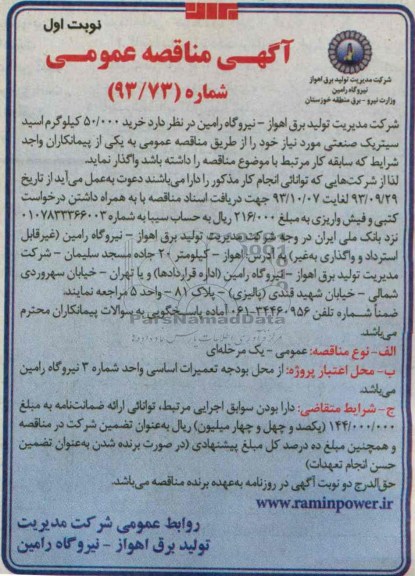 نوبت اول
آگهـی مناقصه عمومـی
شماره (۹۳/۷۳)
شرکت مدیریت تولید برق اهواز
نیروگاه رامین
وزارت نیرو - برق منطقه خوزستان
شرکت مدیریت تولید برق اهواز - نیروگاه رامین در نظر دارد خرید ۵۰/۰۰۰ کیلوگرم اسید
سیتریک صنعتی مورد نیاز خود را از طریق مناقصه عمومی به یکی از پیمانکاران واجد
شرایط که سابقه کار مرتبط با موضوع مناقصه را داشته باشد واگذار نماید.
لذا از شرکت‌هایی که توانائی انجام کار مذکور را دارا می‌باشند دعوت به‌عمل می‌آید از تاریخ
۹۳/۰۹/۲۹ لغایت ۹۳/۱۰/۰۷ جهت دریافت اسناد مناقصه با به همراه داشتن درخواست
کتبی و فیش واریزی به مبلغ ۲۱۶/۰۰۰ ریال به حساب سیبا به شماره ۰۱۰۷۸۳۳۳۶۶۰۰۳
نزد بانک ملی ایران در وجه شرکت مدیریت تولید برق اهواز - نیروگاه رامین (غیرقابل
استرداد و واگذاری به‌غیر) به آدرس اهواز - کیلومتر ۲۰ جاده مسجد سلیمان - شرکت
مدیریت تولید برق اهواز - نیروگاه رامین (اداره قراردادها) و یا تهران - خیابان سهروردی
شمالی - خیابان شهید قندی (پالیزی) - پلاک ۸۱ - واحد ۵ مراجعه نمایند.
ضمناً شـماره تلفن ۳۴۴۶۰۹۵۶-۰۶۱ آماده پاسخگویی به سوالات پیمانکاران محترم
می‌باشد.
الف- نوع مناقصه: عمومی - یک مرحله‌ای
ب- محل اعتبار پروژه: از محل بودجه تعمیرات اساسی واحد شماره ۳ نیروگاه رامین
می‌باشد.
ج- شرایط متقاضی: دارا بودن سوابق اجرایی مرتبط، توانائی ارائه ضمانت‌نامه به مبلغ
۱۴۴/۰۰۰/۰۰۰ (یکصد و چهل و چهار میلیون) ریال به‌عنوان تضمین شرکت در مناقصه
و همچنین مبلغ ده درصد کل مبلغ پیشنهادی (در صورت برنده شدن به‌عنوان تضمین
حسن انجام تعهدات)
حق‌الدرج دو نوبت آگهی در روزنامه به‌عهده برنده مناقصه می‌باشد.
www.raminpower.ir
روابط عمومی شرکت مدیریت
تولید برق اهواز - نیروگاه رامین
ParsNamadData